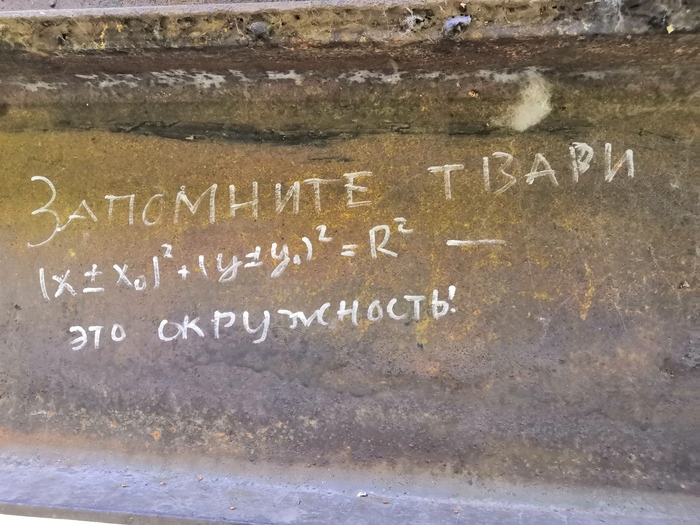 ЗАПОМНИТЕ ТВАРИ
(x ± x₀)² + (y ± y₀)² = R² —
это окружность!